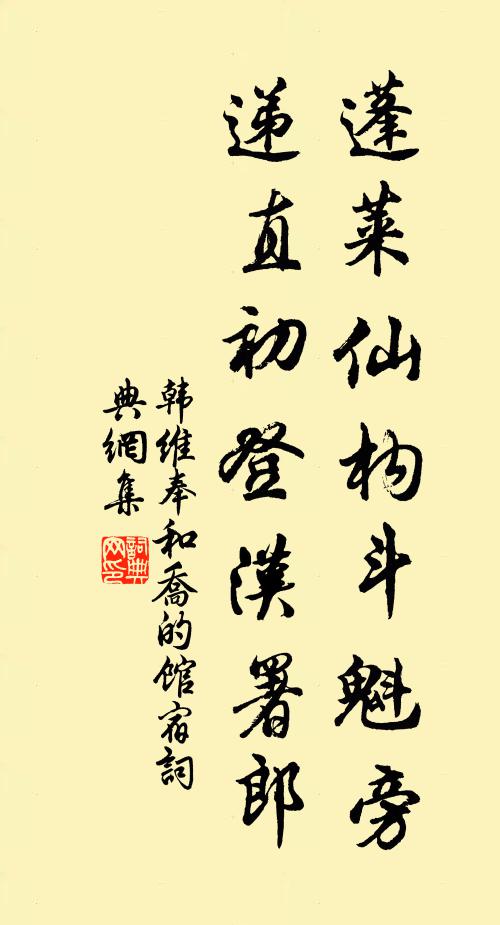 蓬莱仙构斗魁旁
递直初登漢署郎
韩维奉和喬的馆宿詞
典網集
詞典网印